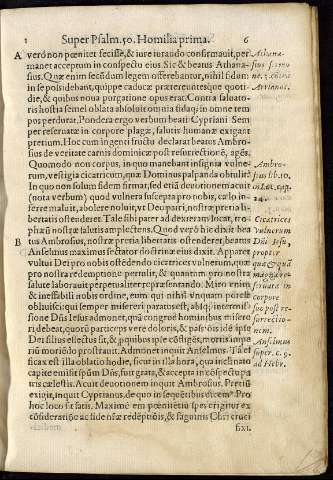 1 Super Psalm. 50. Homilia prima. 6
A verò non pœnitet fecisse, & iure iurando confirmauit, per
manet acceptum in conspectu eius Sic & beatus Athana-
sius. Quæ enim secūdum legem offerebantur, nihil fidum
in se possidebant, quippe caducæ prætereuntesque quoti-
die, & quibus noua purgatione opus erat. Contra saluato-
ris hostia semel oblata absoluit omnia fidaq; in omne tem
pus perdurat. Pondera ergo verbum beati Cypriani Sem
per reseruatæ in corpore plagæ, salutis humanæ exigunt
pretium. Hoc cum ingenti fructu declarat beatus Ambro-
sius de veritate carnis dominicæ post resurrectionē, agēs.
Quomodo non corpus, in quo manebant insignia vulne-
rum, vestigia cicatricum, quæ Dominus palpanda obtulit
In quo non solum fidem firmat, sed etiā deuotionem acuit
(nota verbum) quod vulnera suscepta pro nobis, cælo in-
ferre maluit, abolere noluit, vt Deo patri, nostræ pretia li-
bertatis ostenderet. Tale sibi pater ad dexteram locat, tro-
phæū nostræ salutis amplectens. Quod verò hic dixit bea
B tus Ambrosius, nostræ pretia libertatis ostenderet, beatus
Anselmus maximus sectator doctrinæ eius dixit. Apparet
vultui Dei pro nobis ostēdendo cicatrices vulnerum, quæ
pro nostra redemptione pertulit, & quantum pro nostra
salute laborauit perpetualiter repræsentando. Miro enim
& ineffabili nobis ordine, eum qui nihil vnquam potest
obliuisci qui semper misereri paratus est, absq; intermis-
sione Dñs Iesus admonet, quā congruè hominibus misere
ri debeat, quorū particeps verè doloris, & passiōis idē ipse
Dei filius effectus sit, & quibus ipse cōdigēs, mortis impe
riū moriēdo prostrauit. Admonet inquit Anselmus. Tā ef
ficax est illa oblatio hodie, sicut in illa hora, qua inclinato
capite emisit spūm Dñs, fuit grata, & accepta in cōspectu pa
tris cælestis. Acuit deuotionem inquit Ambrosius. Pretiū
exigit, inquit Cyprianus, de quo in sequentibus dicem' Pro
hoc loco sit satis. Maximè em pœnitētiū spes erigitur ex
cōsideratiōe ac fide nr̄æ redēptiōis, & sanguinis Christi cruci
fixi.
Athana-
sius sermo
ne. 3. cōtra
Arrianos.
Ambro-
sius lib. 10.
in Luc. cap.
24.
Cicatrices
vulnerum
Dñi Iesu,
propter
quæ & quā
Anselmus
super. c. 9.
ad Hebr.